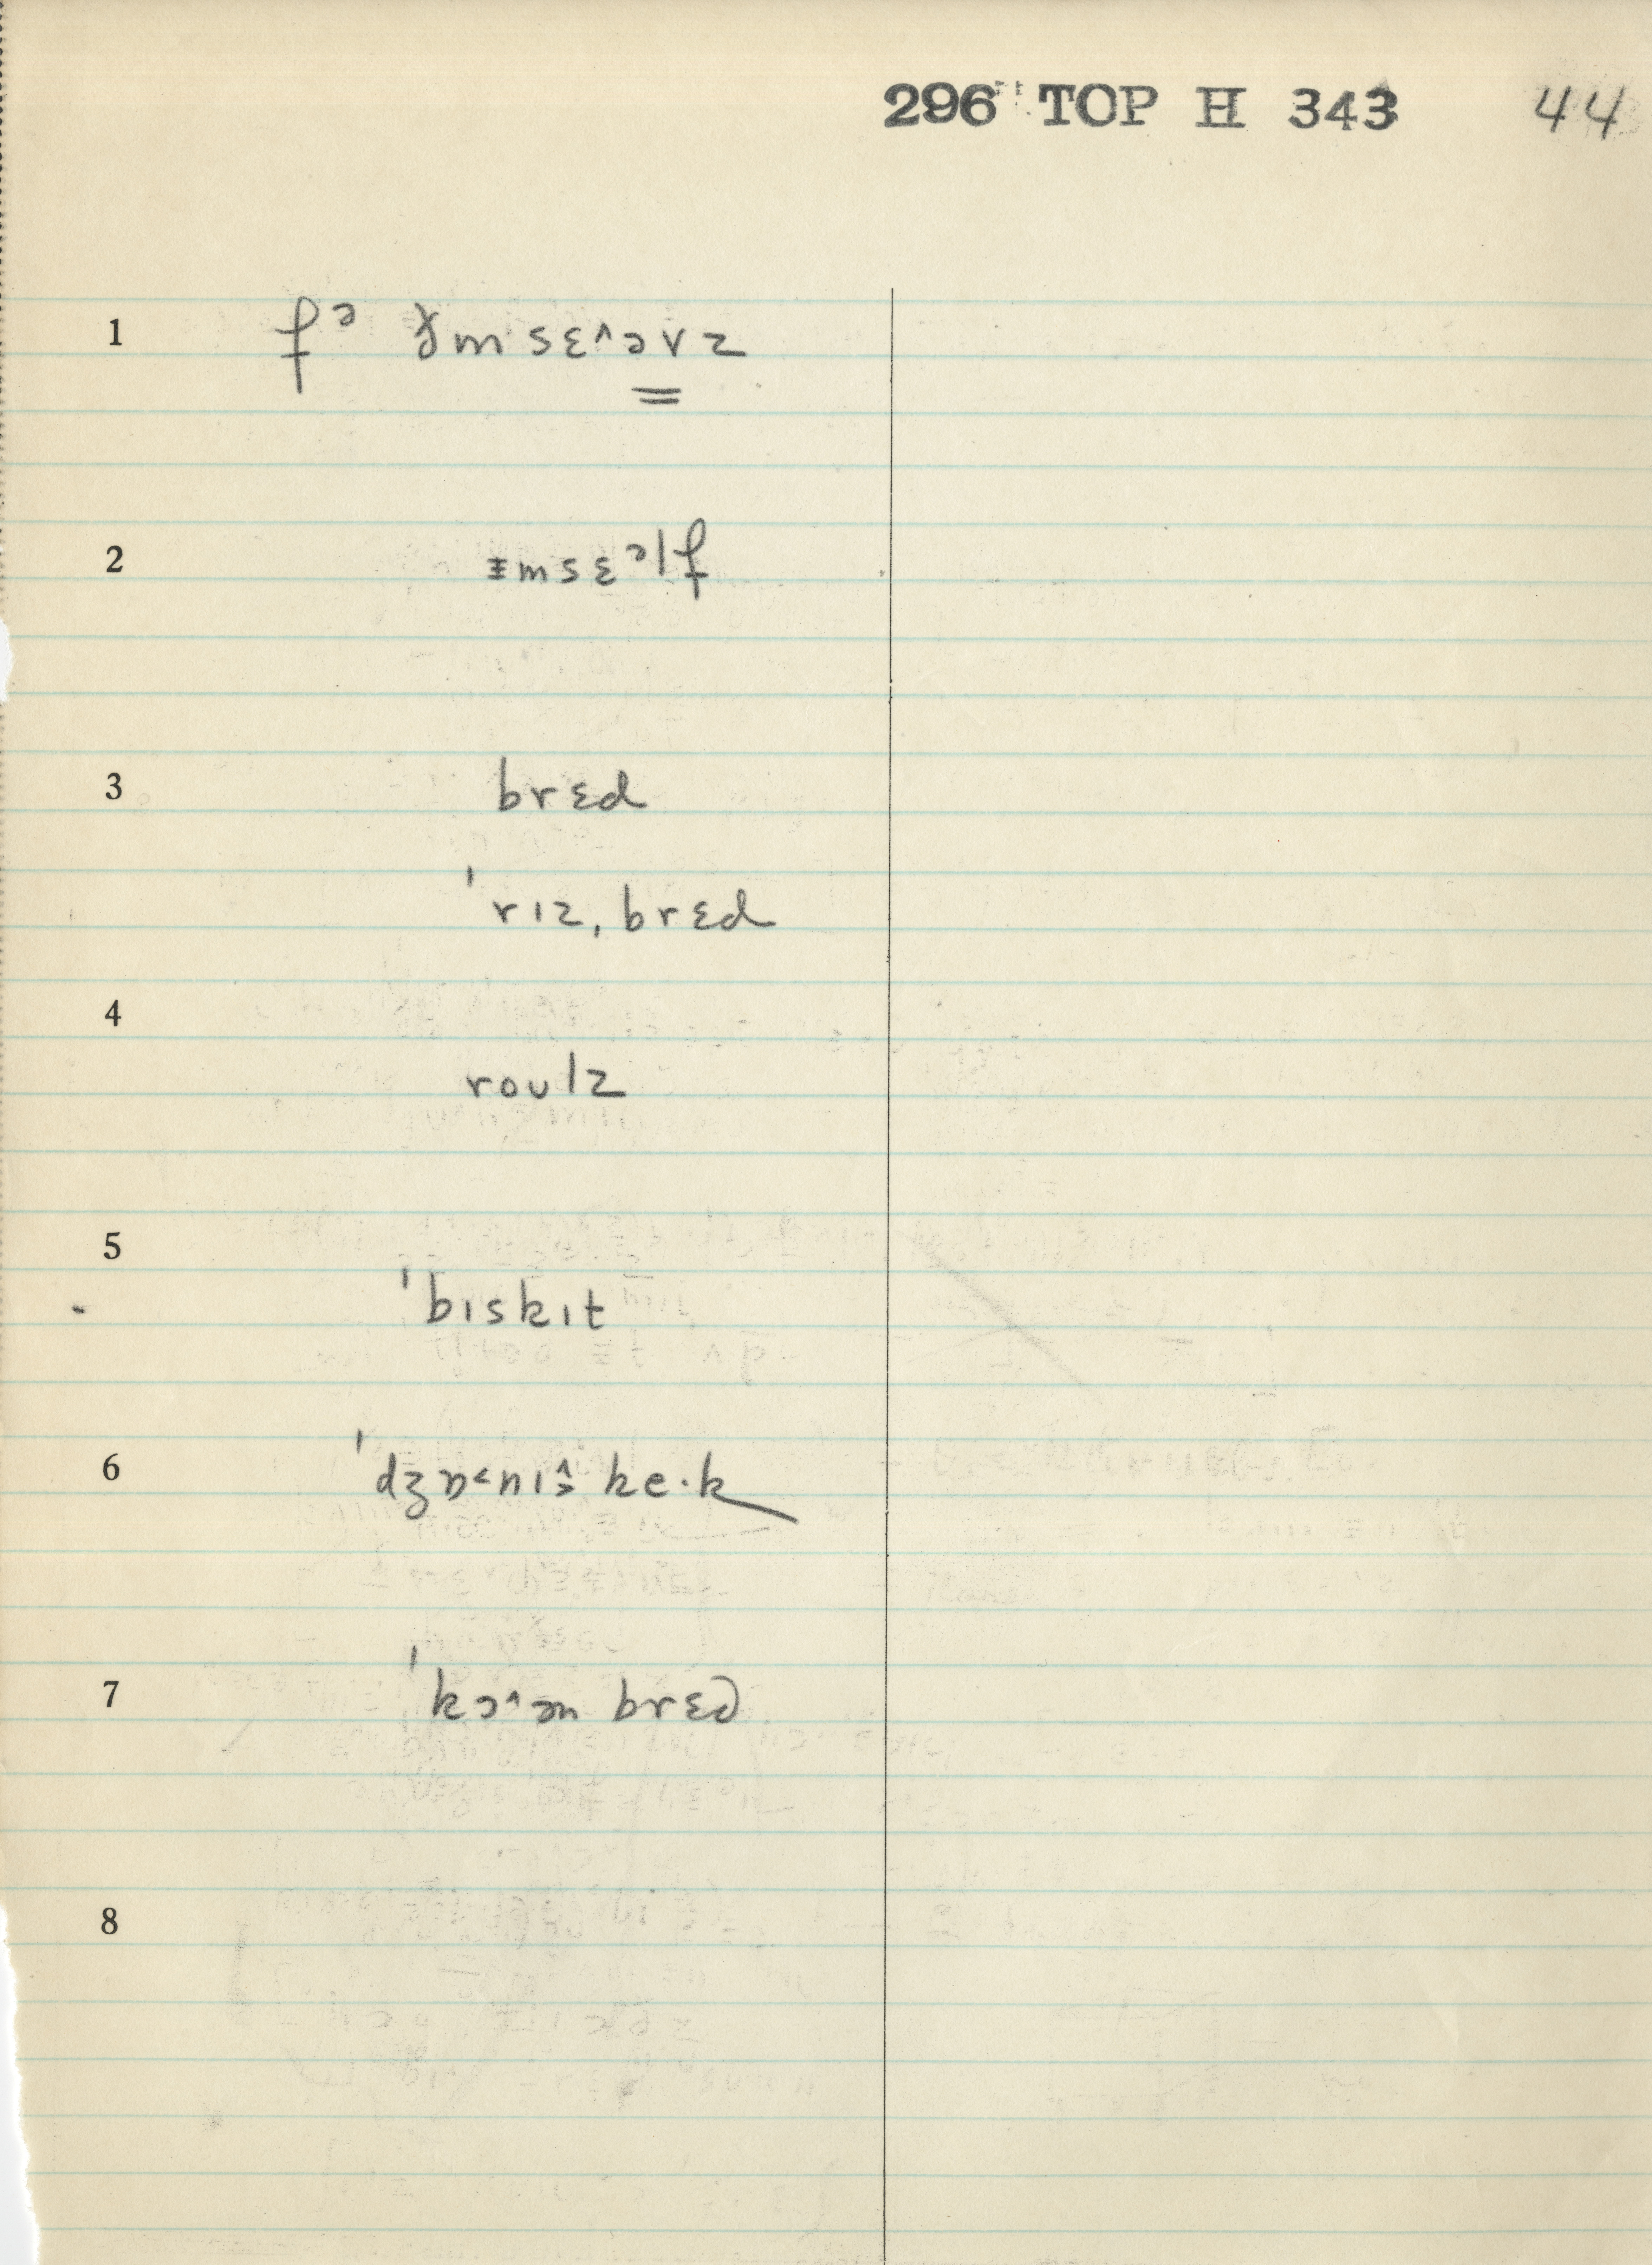 296 TOP H 343 44
1 fɚ ðm sɛ^əvz
2 ɨmsɛəlf
3 brɛd
ˈrɪzˌbrɛd
4
roʊlz
5
ˈbɪskɪt
6 ˈdʒɒ<nɪ^> ke·k
7 ˈkɔ^ən brɛd
8